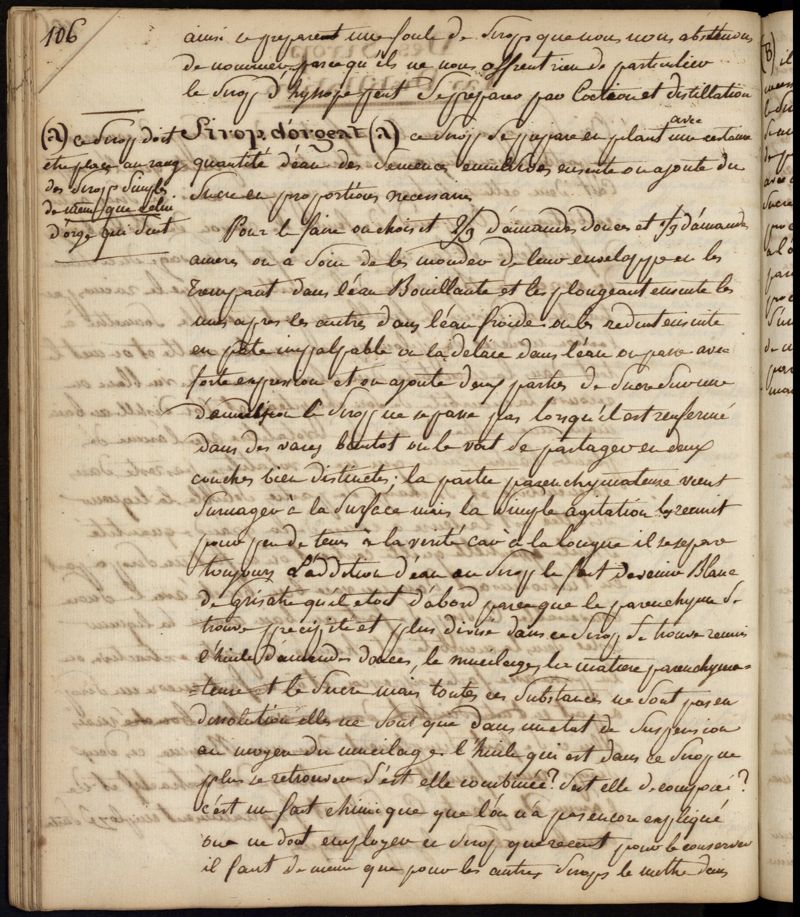 106
ainsi se preparent une foule de Sirops que nous nous abstenons
de nommer parcequ'ils ne nous offrent rien de particulier
le Sirop d'hysope peut se preparer par Coction et distillation
Sirop d'orgeat (a) ce Sirop se prepare en pilant avec une certaine
quantité d'eau des semences emulsives ensuite on ajoute du
Sucre en proportions necessaires
Pour le faire on choisit 2/3 d'amandes douces et 1/3 d'amandes
ameres on a soin de les monder de leur enveloppe en les
trempant dans l'eau Bouillante et les plongeant ensuite les
unes apres les autres dans l'eau froide on les reduit ensuite
en pâte impalpable on la delaie dans l'eau on passe avec
forte expression et on ajoute deux parties de Sucre sur une
d'emulsion le Sirop ne se passe pas lorsqu'il est renfermé
dans des vases bientot on le voit se partager en deux
couches bien distinctes; la partie parenchymateuse vient
surnager à la surface mais la simple agitation les reunit
pour peu de tems à la verité car à la longue il se separe
toujours L'addition d'eau au Sirop le fait devenir Blanc
de grisatre qu'il etoit d'abord parce que le parenchyme se
trouve precipité et plus divisé dans ce Sirop se trouve reunis
l'huile d'amandes douces, le mucilage, la matiere parenchyma-
=teuse et le Sucre mais toutes ces substances ne sont pas en
dissolution elles ne sont que dans un etat de suspension
au moyen du mucilage l'huile qui est dans ce Sirop ne
plus se retrouver s'est elle combinée? s'est elle decomposée?
c'est un fait chimique que l'on n'a pas encore expliqué
on ne doit employer ce Sirop que recent pour le conserver
il faut de meme que pour les autres Sirops le mettre dans
(a) ce Sirop doit
etre placé au rang
des Sirops Simples
de meme que celui
d'orge qui suit
(B)